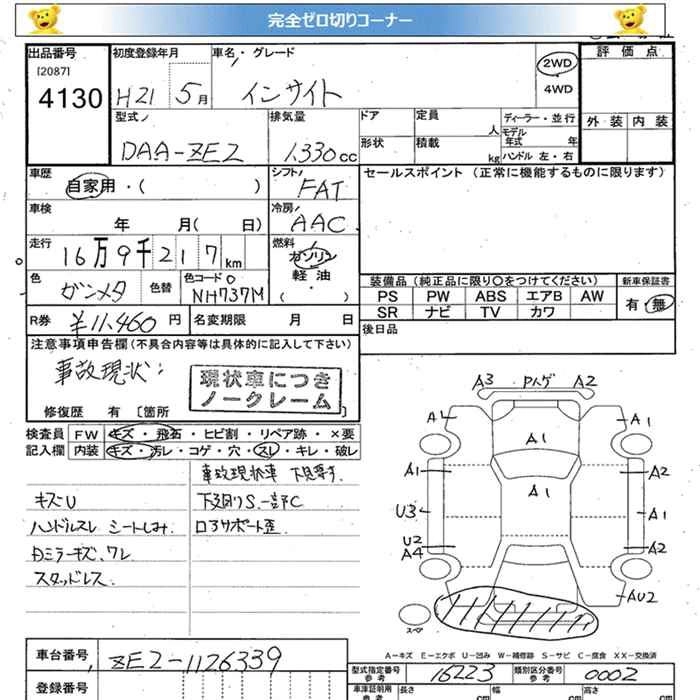 完全ゼロ切りコーナー
出品番号 初度登録年月 車名・グレード 2WD 4WD 評価点
[2087]
4130 H21 5月 インサイト
外装 内装
型式 排気量 ドア 定員 人 ディーラー・並行
DAA-ZE2 1,330cc 形状 積載 kg モデル年式 年
ハンドル 左・右
車歴 シフト セールスポイント (正常に機能するものに限ります)
自家用・( ) FAT
車検 年 月( 日) 冷房 AAC
走行 16万9千217km 燃料 ガソリン
軽油
( )
色 ガンメタ 色替 色コードNo NH737M
装備品 (純正品に限り○をつけてください) 新車保証書
PS PW ABS エアB AW 有・無
SR ナビ TV カワ
R券 ¥11,460円 名変期限 月 日 後日品
注意事項申告欄(不具合内容等は具体的に記入して下さい)
事故現状:
現状車につき
ノークレーム
修復歴 有 [箇所 ]
検査員 FW キズ・飛石・ヒビ割・リペア跡・×要
記入欄 内装 キズ・汚レ・コゲ・穴・スレ・キレ・破レ
事故現状車 下見要す.
キズU 下廻りS.一部C
ハンドルスレ シートしみ. コアサポート歪
Dミラーキズ、ワレ
スタッドレス.
A3 Pハゲ A2
A1 A1
A1
A1 A2
A1
U3 A1
U2 A2
A4
AU2
スペア
A-キズ E-エクボ U-凹み W-補修跡 S-サビ C-腐食 XX-交換済
車台番号 ZE2-1126339
型式指定番号 参考 16223 類別区分番号 参考 0002
登録番号
車庫証明用 参考 長さ cm 幅 cm 高さ cm